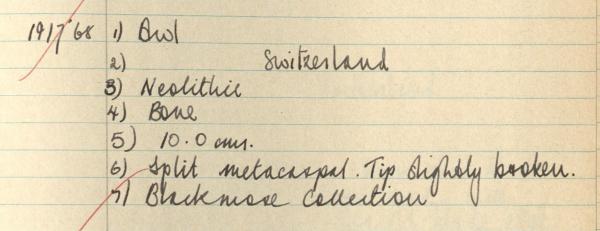 1917'68 1) Awl
2) Switzerland
3) Neolithic
4) Bone
5) 10.0 cms.
6) Split metacarpal. Tip slightly broken.
7) Blackmore Collection